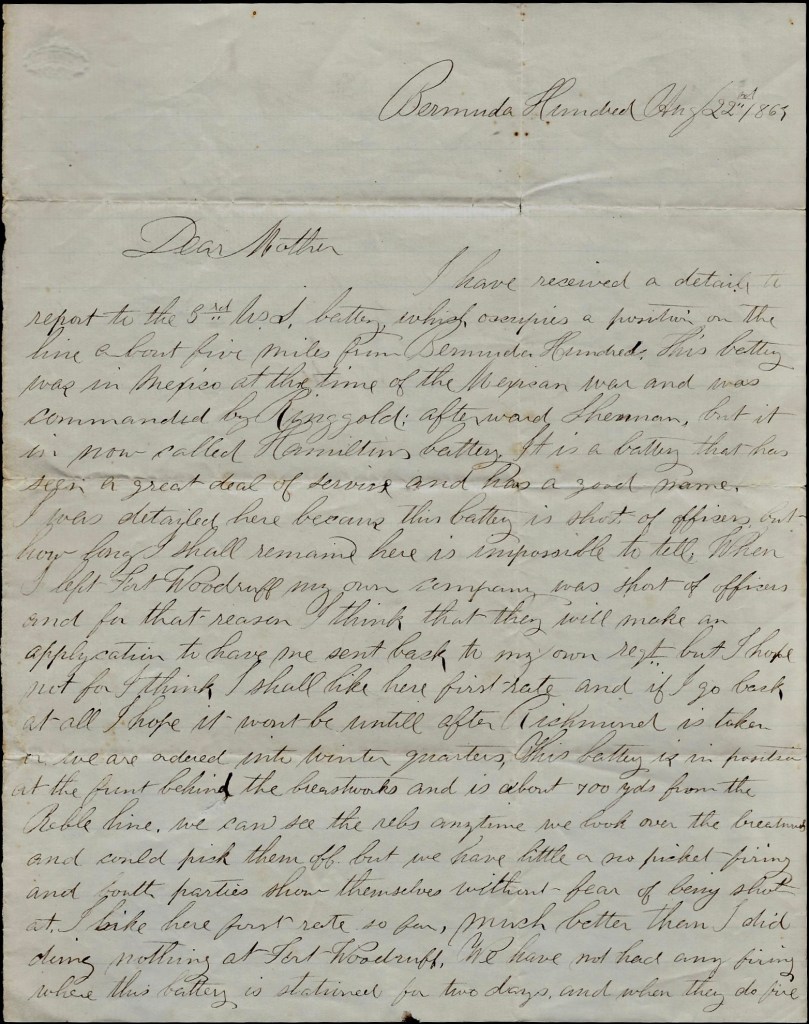 Bermuda Hundred Aug 22nd 186
Dear Mother
I have received a detail to
report to the 3rd U.S. battery, which occupies a position on the
line about five miles from Bermuda Hundreds. This battery
was in Mexico at the time of the Mexican war and was
commanded by Ringgold; afterward Sherman, but it
is now called Hamiltons battery. It is a battery that has
seen a great deal of service and has a good name.
I was detailed here because this battery is short of officers, but
how long I shall remain here is impossible to tell. When
I left Fort Woodruff my own company was short of officers
and for that reason I think that they will make an
applycation to have me sent back to my own regt. but I hope
not for I think I shall like here first-rate and if I go back
at all I hope it wont be untill after Richmond is taken
or we are ordered into winter quarters. This battery is in position
at the frunt behind the breastworks and is about 700 yds from the
Reble line. we can see the rebs anytime we look over the breastworks
and could pick them off but we have little or no picket firing
and both parties show themselves without fear of being shot
at. I like here first rate so far, much better than I did
doing nothing at Fort Woodruff. We have not had any firing
where this battery is stationed for two days, and when they do fire